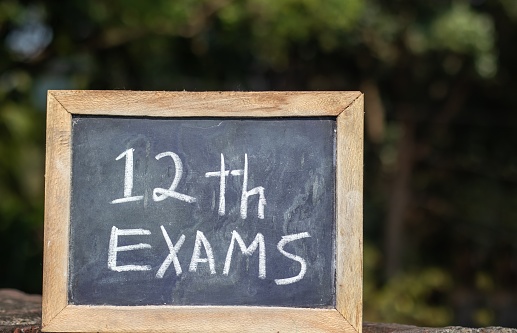 12th
EXAMS